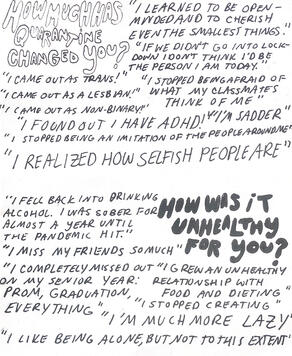 HOW MUCH HAS
QUARANTINE
CHANGED YOU?
"I LEARNED TO BE OPEN-
MINDED AND TO CHERISH
EVEN THE SMALLEST THINGS."
"IF WE DIDN'T GO INTO LOCK-
DOWN I DON'T THINK I'D BE
THE PERSON I AM TODAY."
"I CAME OUT AS TRANS!"
"I CAME OUT AS A LESBIAN!"
"I CAME OUT AS NON-BINARY!"
"I STOPPED BEING AFRAID OF
WHAT MY CLASSMATES
THINK OF ME"
"I FOUND OUT I HAVE ADHD!" "I'M SADDER"
"I STOPPED BEING AN IMITATION OF THE PEOPLE AROUND ME"
"I REALIZED HOW SELFISH PEOPLE ARE"
"I FELL BACK INTO DRINKING
ALCOHOL. I WAS SOBER FOR
ALMOST A YEAR UNTIL
THE PANDEMIC HIT."
HOW WAS IT
UNHEALTHY
FOR YOU?
"I MISS MY FRIENDS SO MUCH"
"I COMPLETELY MISSED OUT
ON MY SENIOR YEAR:
PROM, GRADUATION,
EVERYTHING"
"I GREW AN UNHEALTHY
RELATIONSHIP WITH
FOOD AND DIETING"
"I STOPPED CREATING"
"I'M MUCH MORE LAZY"
"I LIKE BEING ALONE, BUT NOT TO THIS EXTENT"